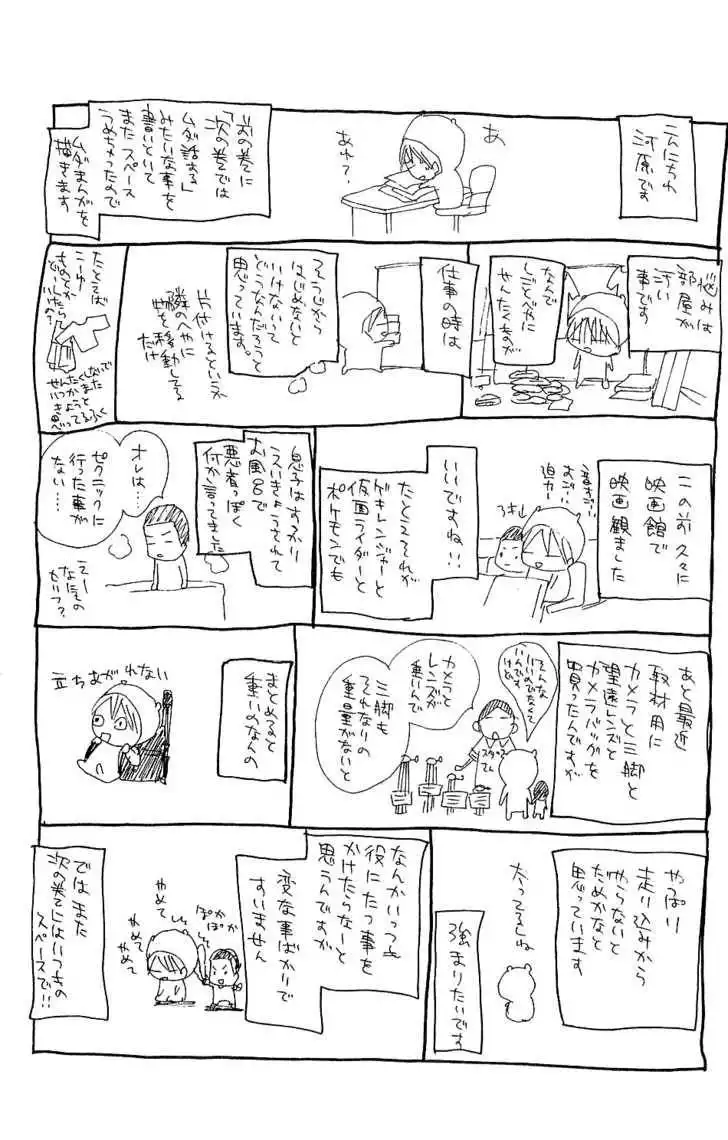 こんにちわ
河原です
あ
あれ?
前の巻に
「次の巻では
ムダ話する」
みたいな事を
書いといて
またスペース
うめちゃったので
ムダまんがを
描きます
悩みは
部屋が
汚い
事です
なんで
しごとべやに
せんたくものが
仕事の時は
そうじから
はじめないと
いけないって
どうなんだろうと
思っています。
片付けるというか
隣のへやに
物を移動してる
だけ
たとえば
せんたくしないで
いつかまた
きようと
思ってるふく
この前久々に
映画館で
映画観ました
音すごい
おご…
迫力…
いいですね!!
たとえそれが
ゲキレンジャーと
仮面ライダーと
ポケモンでも
息子はすっかり
えいきょうされて
お風呂で
悪者っぽく
何か言ってました
オレは…
ピクニックに
行った事が
ない…
えー
なにその
せりふ?
あと最近
取材用に
カメラと三脚と
望遠レンズと
カメラバッグを
買ったんですが
そんな
いいのでなくて
いいんです
けど
スタッフ
さん
カメラと
レンズが
重いんで
三脚も
それなりの
重量がないと
まとめると
重いのなんの
立ちあがれない
やっぱり
走り込みから
やらないと
だめかなと
思っています
太ってるしね
強まりたいです
なんかいつも
役にたつ事を
かけたらなーと
思うんですが
変な事ばかりで
すいません
ぽかぽか
やめて
やめて
やめて
ではまた
次の巻にはいつもの
スペースで!!